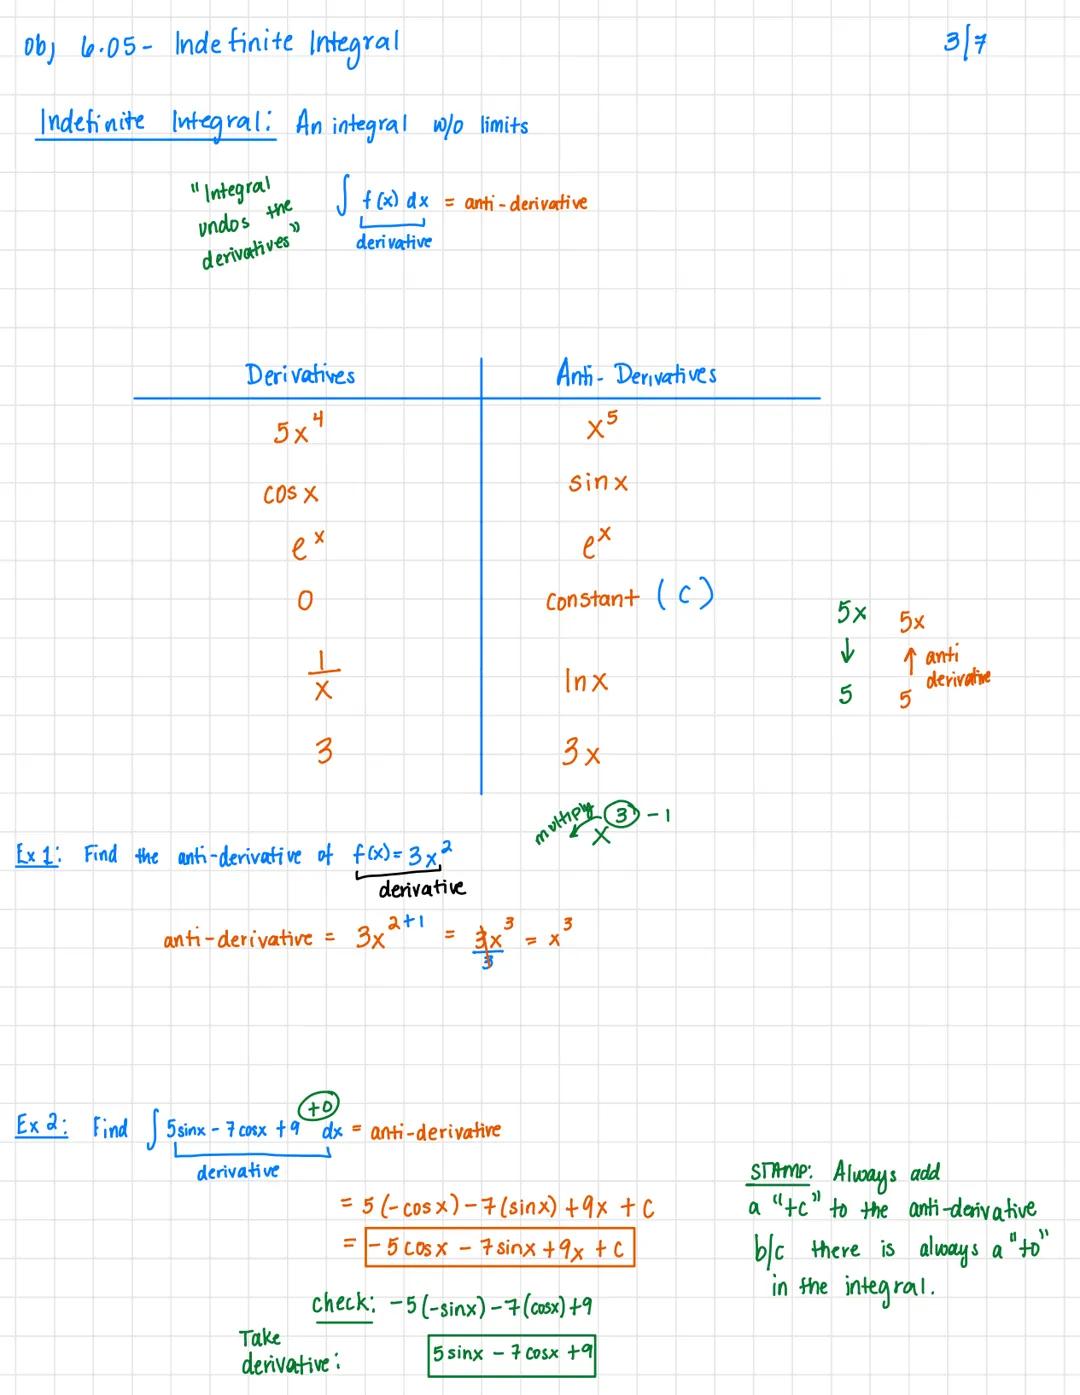 Obj 6.05 - Indefinite Integral 3/7
Indefinite Integral: An integral w/o limits
"Integral undos the derivatives"
∫ f(x) dx = anti-derivative
derivative
Derivatives Anti-Derivatives
5x⁴ x⁵
cos x sin x
eˣ eˣ
0 constant (C)
1/x ln x
3 3x
5x 5x
↓ ↑ anti derivative
5 5
multiply x³ - 1
Ex 1: Find the anti-derivative of f(x) = 3x²
derivative
anti-derivative = 3x²⁺¹ = 3x³/3 = x³
Ex 2: Find ∫ 5sinx - 7cosx + 9 +0 dx = anti-derivative
derivative
= 5(-cosx) - 7(sinx) + 9x + C
= -5cosx - 7sinx + 9x + C
check: -5(-sinx) - 7(cosx) + 9
Take derivative:
5sinx - 7cosx + 9
STAMP: Always add
a "+c" to the anti-derivative
b/c there is always a "+0"
in the integral.